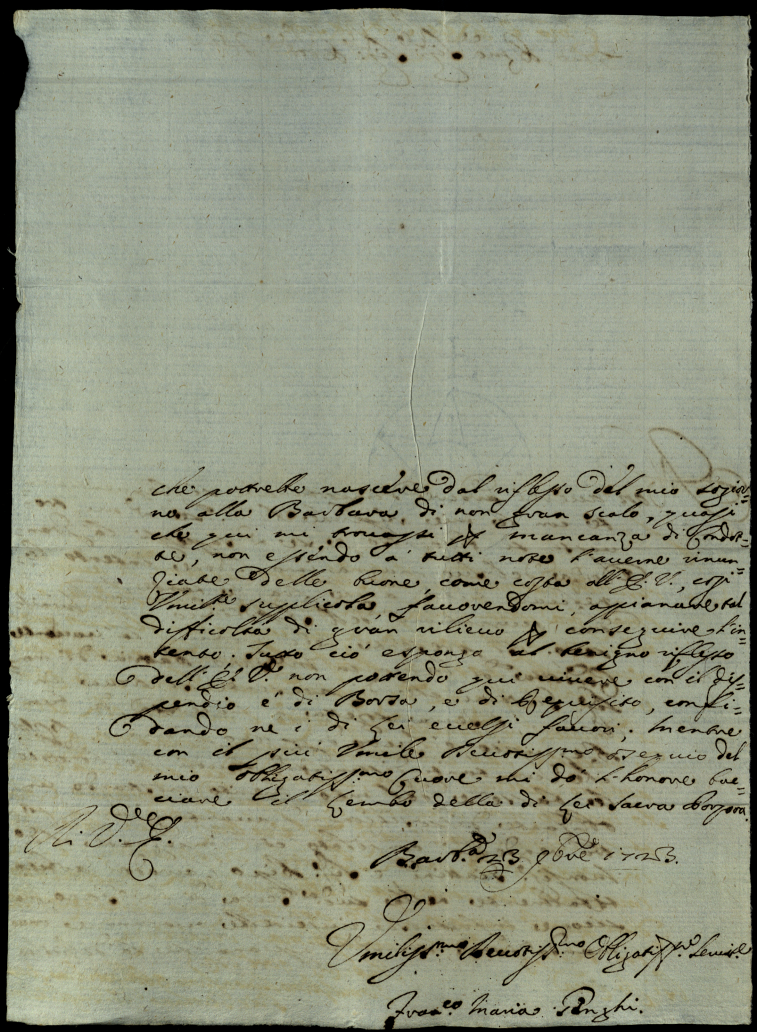 che potrebbe nascere dal riflesso del mio sogior=
no alla Barbara di non gran scalo, quasi
che qui mi trovassi p mancanza di Condot=
te, non essendo a' tutti note l'averne rinun=
ziate delle buone, come costa all' E. V., così
Umilte supplicola, favorendomi, appianare tal
difficoltà di gran rilievo p conseguire l'in=
tento. Tutto ciò espongo al benigno riflesso
dell' E. V. non potendo qui vivere con il dis=
pendio e' di Borsa, e di , confi=
dando ne i di Lei eccelsi favori, mentre
con il più Umile Devotissmo ossequio del
mio obbligatissmo Cuore mi do' l'honore bac=
ciare il Lembo della di Lei Sacra Porpora.
Di V. E.
Barba 23 9bre 1723.
Umilissmo Devotissmo Obbligatissmo Servre
Franco Maria